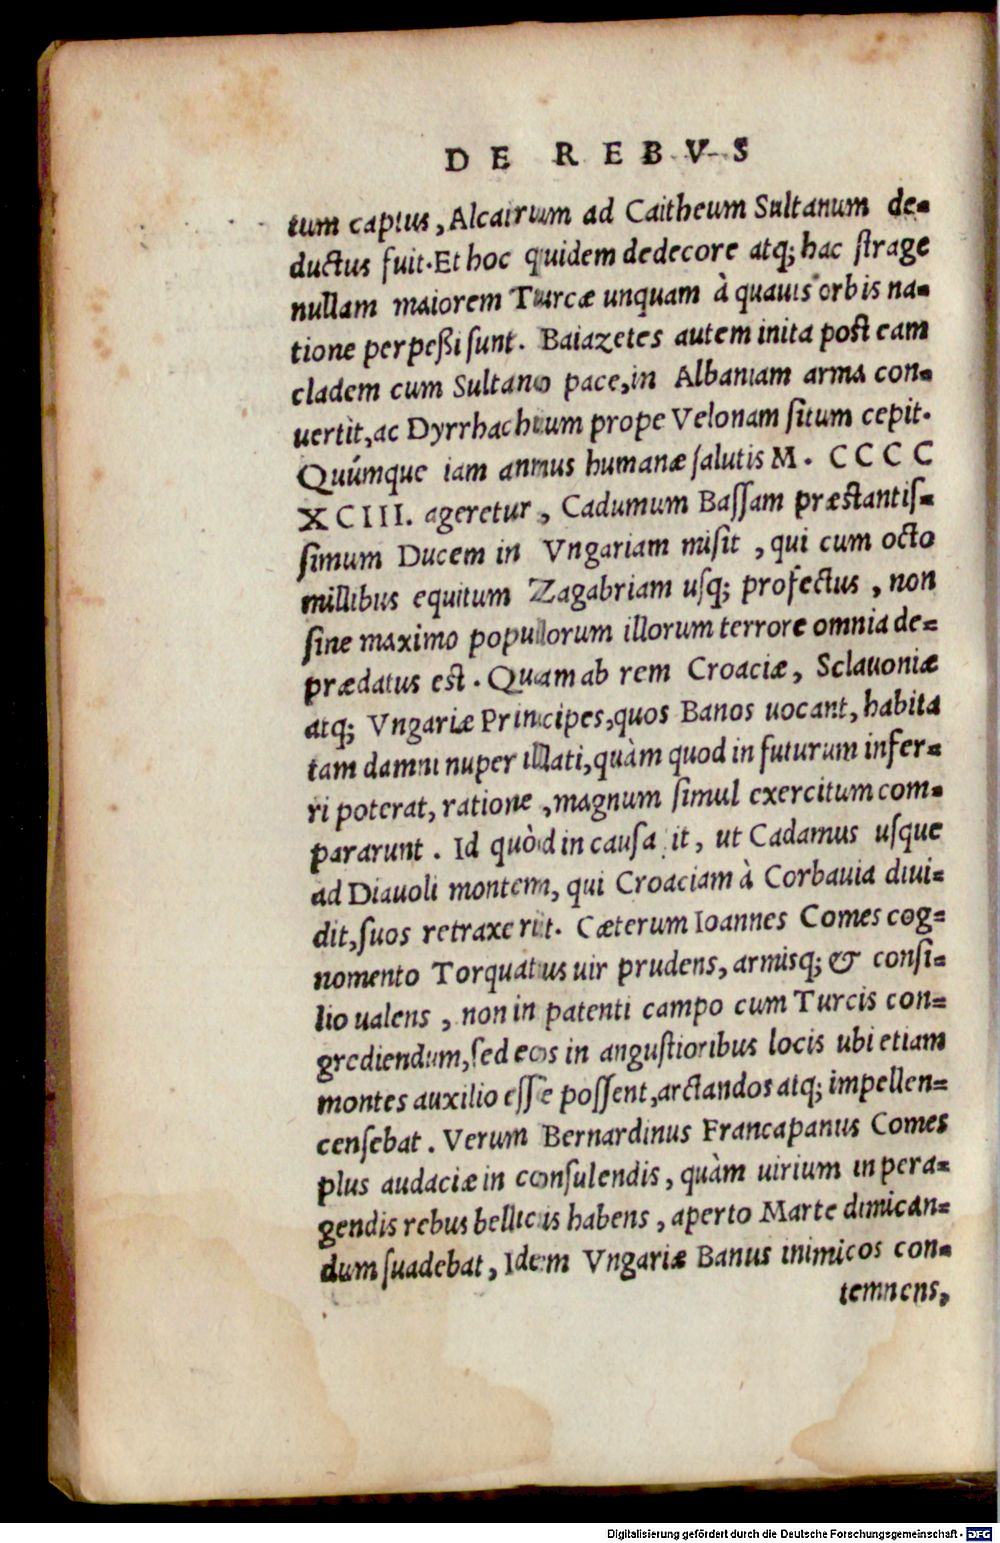 DE REBVS
tum captus, Alcairum ad Caitheum Sultanum de=
ductus fuit. Et hoc quidem dedecore atq; hac strage
nullam maiorem Turcæ unquam à quauis orbis na=
tione perpeßi sunt. Baiazetes autem inita post eam
cladem cum Sultano pace, in Albaniam arma con=
uertit, ac Dyrrhachium prope Velonam situm cepit.
Quúmque iam annus humanæ salutis M. CCCC
XCIII. ageretur, Cadumum Bassam præstantis=
simum Ducem in Vngariam misit, qui cum octo
millibus equitum Zagabriam usq; profectus, non
sine maximo populorum illorum terrore omnia de=
prædatus est. Quam ab rem Croaciæ, Sclauoniæ
atq; Vngariæ Principes, quos Banos uocant, habita
tam damni nuper illati, quàm quod in futurum infer=
ri poterat, ratione, magnum simul exercitum com=
pararunt. Id quòd in causa it, ut Cadamus usque
ad Diauoli montem, qui Croaciam à Corbauia diui=
dit, suos retraxerit. Cæterum Ioannes Comes cog=
nomento Torquatus uir prudens, armisq; & consi=
lio ualens, non in patenti campo cum Turcis con=
grediendum, sed eos in angustioribus locis ubi etiam
montes auxilio esse possent, arctandos atq; impellen=
censebat. Verum Bernardinus Francapanus Comes
plus audaciæ in consulendis, quàm uirium in pera=
gendis rebus bellicis habens, aperto Marte dimican=
dum suadebat, Idem Vngariæ Banus inimicos con=
temnens,
Digitalisierung gefördert durch die Deutsche Forschungsgemeinschaft - DFG